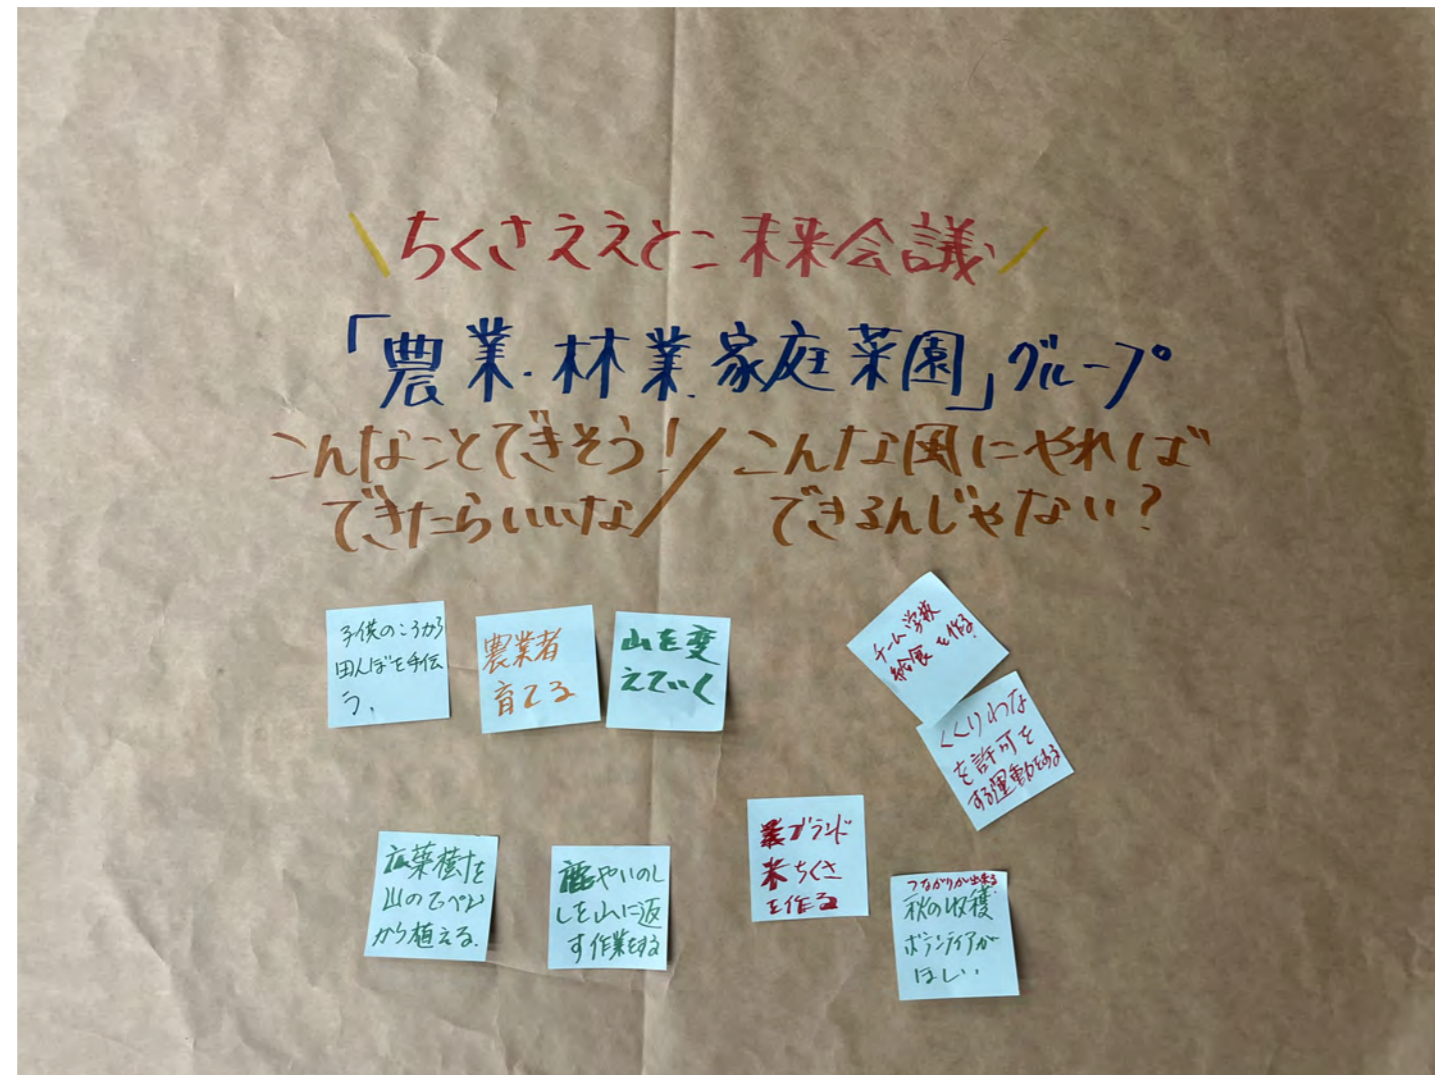 \ちくさええとこ未来会議/
「農業.林業.家庭菜園」グループ
こんなことできそう!/こんな風にやれば
できたらいいな/できるんじゃない?
子供のころから
田んぼを手伝
う。
農業者
育てる
山を変
えていく
チーム学校
給食を作る
くくりわな
を許可を
する運動をする
広葉樹を
山のてっぺん
から植える.
鹿やいのし
しを山に返
す作業をする
ブランド
米ちくさ
を作る
つながりが出来る
秋の収穫
ボランティアが
ほしい